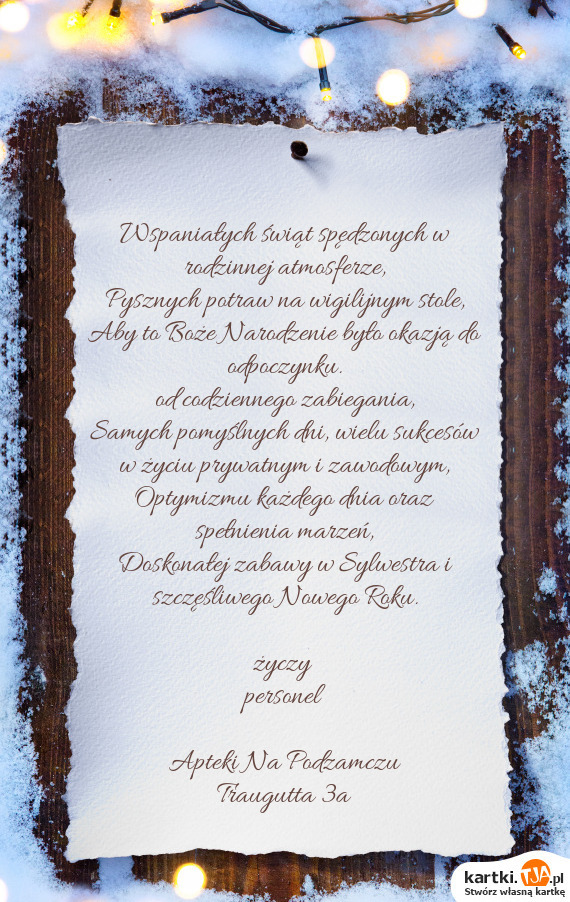 Wspaniałych świąt spędzonych w
rodzinnej atmosferze,
Pysznych potraw na wigilijnym stole,
Aby to Boże Narodzenie było okazją do
odpoczynku.
od codziennego zabiegania,
Samych pomyślnych dni, wielu sukcesów
w życiu prywatnym i zawodowym,
Optymizmu każdego dnia oraz
spełnienia marzeń,
Doskonałej zabawy w Sylwestra i
szczęśliwego Nowego Roku.
życzy
personel
Apteki Na Podzamczu
Traugutta 3a
kartki.TJA.pl
Stwórz własną kartkę